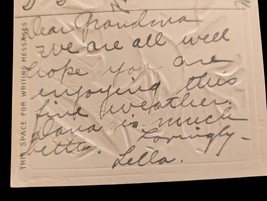 Dear Grandma
We are all well
hope you are
enjoying this
fine weather.
Dana is much
better. Lovingly-
Lella.
THIS SPACE FOR WRITING MESSAGES